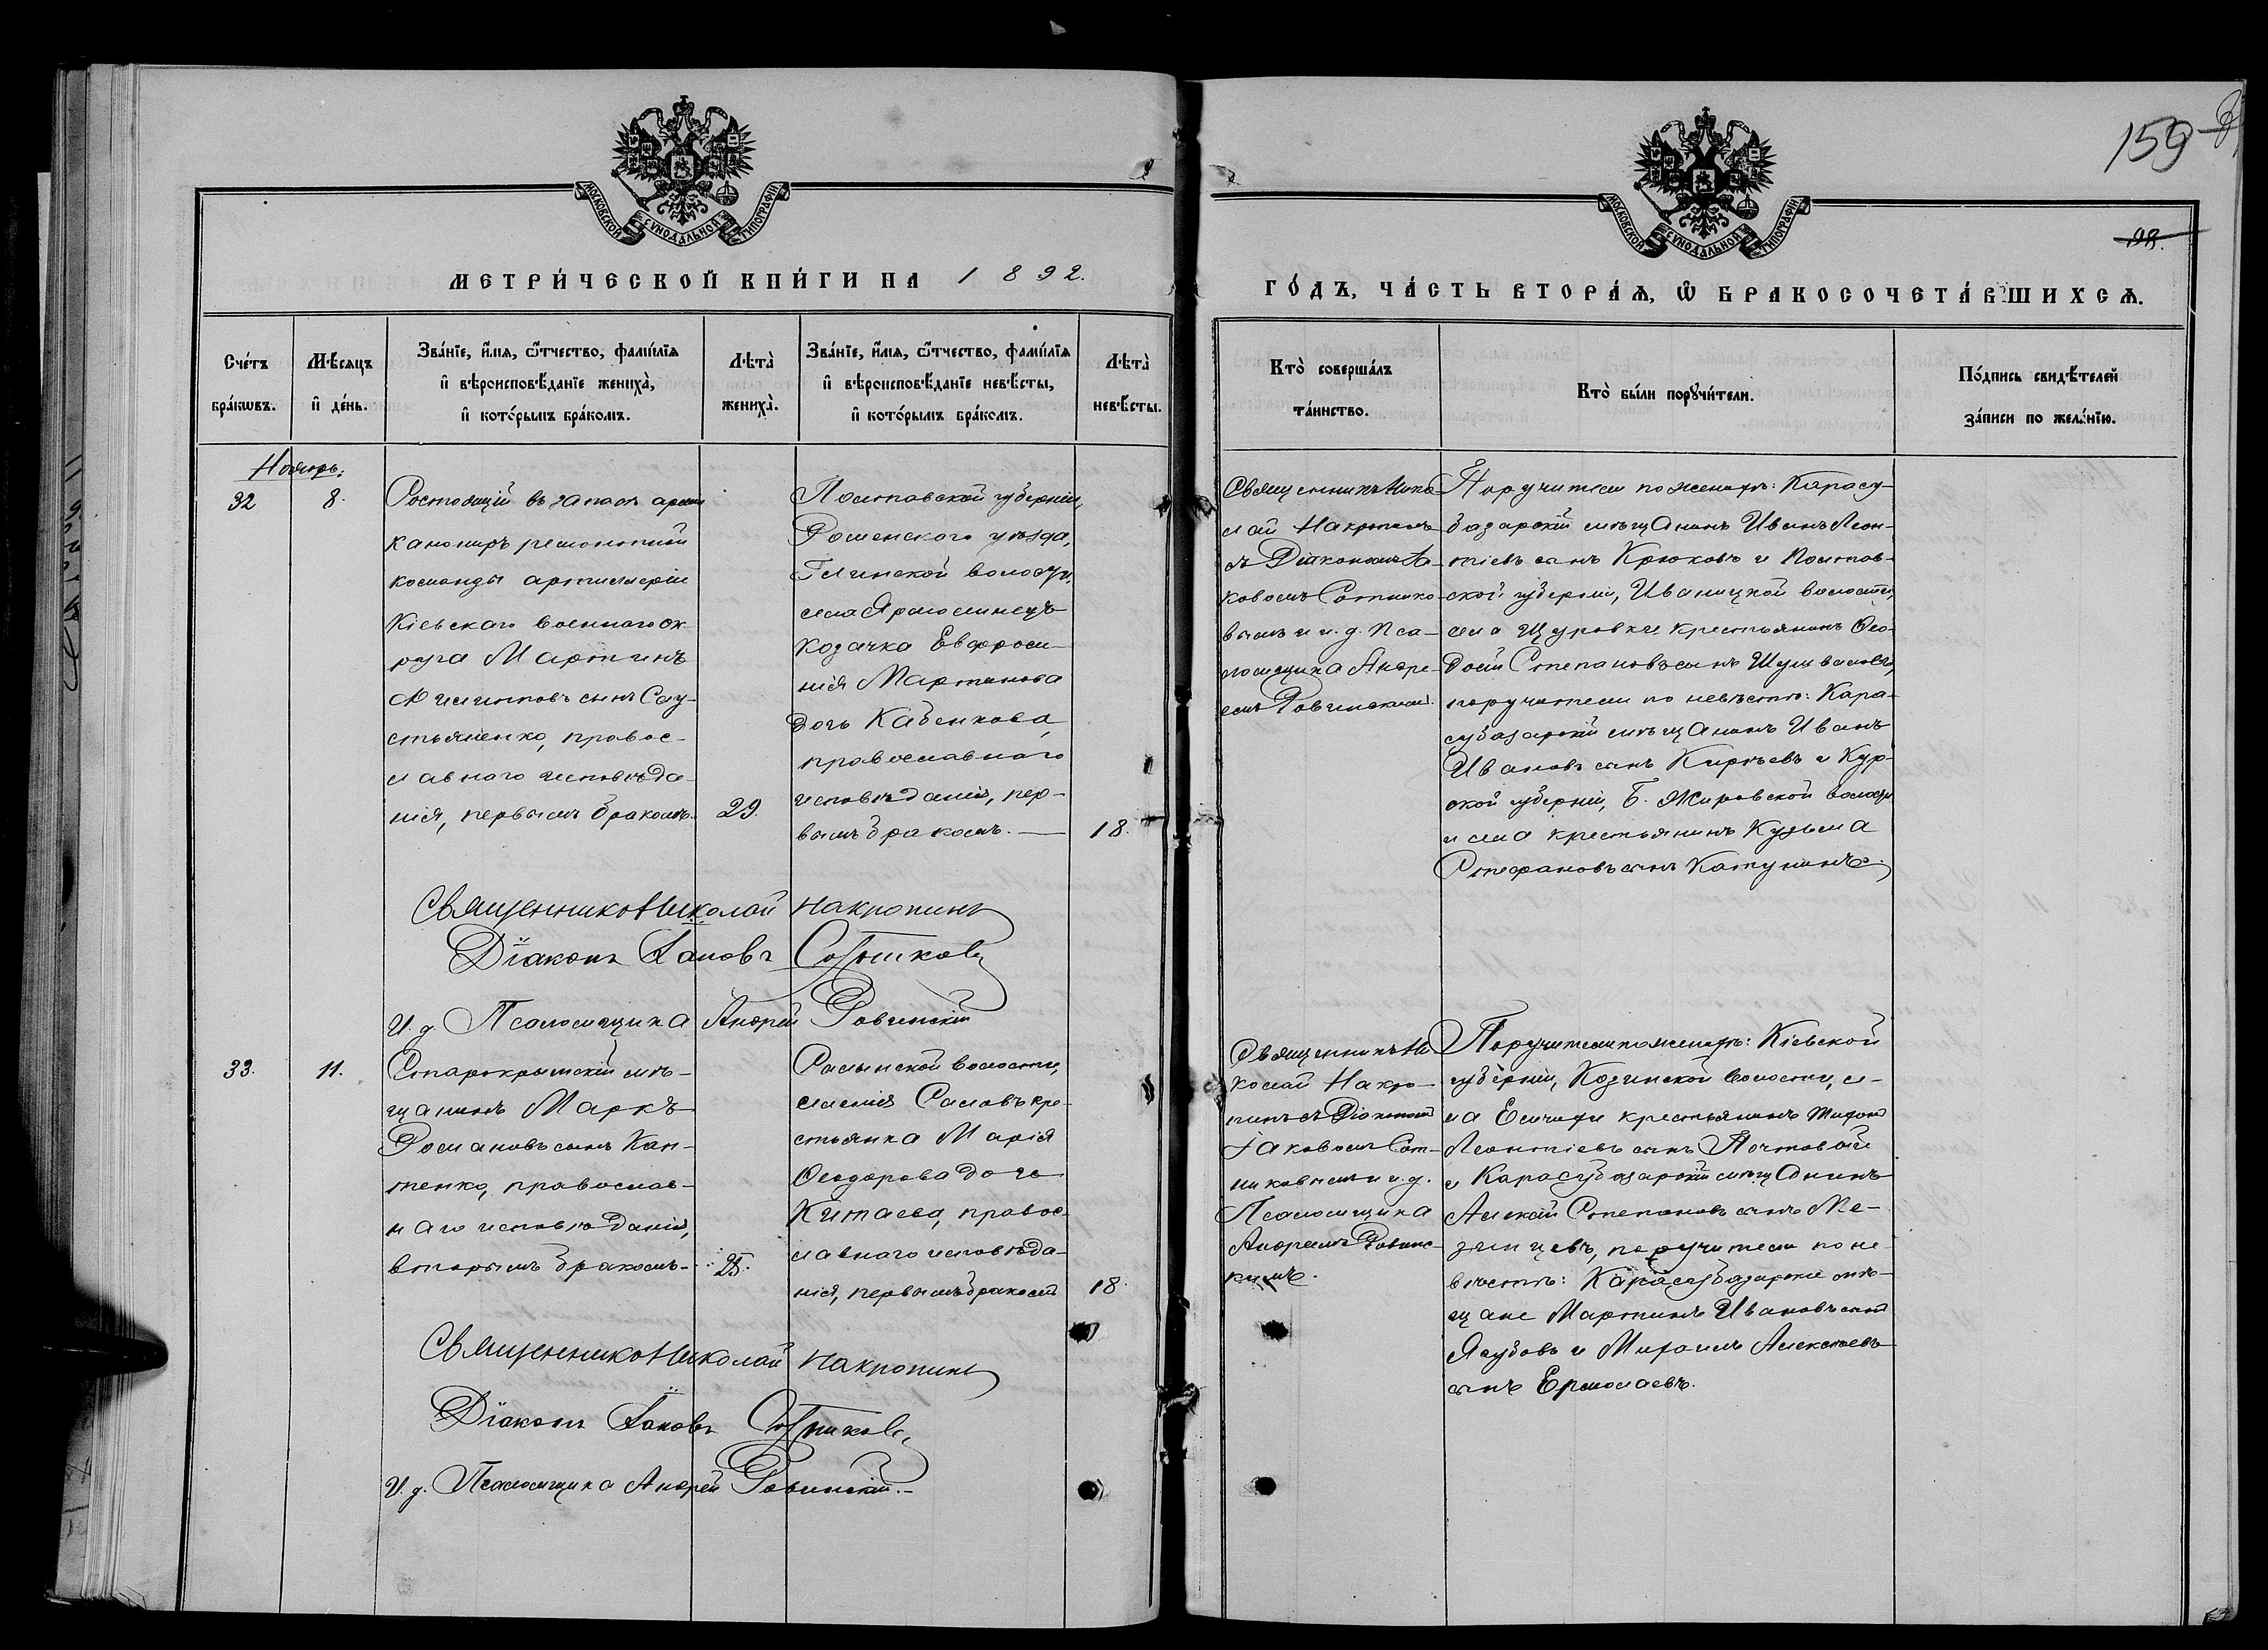 159
98.
МОСКОВСКОЙ СѴНОДАЛЬНОЙ ТИПОГРАФІИ
МОСКОВСКОЙ СѴНОДАЛЬНОЙ ТИПОГРАФІИ
МЕТРИ́ЧЕСКОЙ КНИ́ГИ НА 1892.
ГО́ДЪ, ЧА́СТЬ ВТОРА́Ѧ, Ѡ҆ БРАКОСОЧЕТА́ВШИХСѦ.
Сче́тъ
бра́кѡвъ.
Мѣ́сяцъ
и҆ де́нь.
Зва́нїе, и҆́мѧ, ѻ҆́тчество, фамі́лїѧ
и҆ вѣроисповѣ́данїе жениха̀,
и҆ кото́рымъ бра́комъ.
Лѣта̀
жениха̀.
Зва́нїе, и҆́мѧ, ѻ҆́тчество, фамі́лїѧ
и҆ вѣроисповѣ́данїе невѣ́сты,
и҆ кото́рымъ бра́комъ.
Лѣта̀
невѣ́сты.
Кто̀ соверша́лъ
та́инство.
Кто̀ бы́ли порꙋчи́тели.
По́дпись свидѣ́телей
за́писи по жела́нїю.
Ноябрь.
32
8.
Состоящій въ запасѣ арміи
канониръ ремонтной
команды артиллеріи
Кіевскаго военнаго ок
руга Мартинъ
сынъ Сау-
стьяненко, правос-
лавнаго исповѣда-
нія, первымъ бракомъ.
29.
Полтавской губерніи,
Роменскаго уѣзда,
Глинской волости,
села Ярмолинецъ
козачка Евфроси-
нія Мартинова
дочь Кабенкова,
православнаго
исповѣданія, пер-
вымъ бракомъ. —
18.
Священникъ Нико-
лай Накропинъ
съ Діакономъ Іа-
ковомъ Сотнико-
вымъ и и. д. Пса-
ломщика Андре-
емъ Ровинскимъ.
Поручители по женихѣ: Карасу-
базарскій мѣщанинъ Иванъ Леон-
тіевъ сынъ Крюковъ и Полтав-
ской губерніи, Иваницкой волости,
села Щуровки крестьянинъ Ѳео-
досій Степановъ сынъ
поручители по невѣстѣ: Кара-
субазарскій мѣщанинъ Иванъ
Ивановъ сынъ Кирѣевъ и Кур-
ской губерніи, Б. Жировской волости
и села крестьянинъ Кузьма
Стефановъ сынъ Катунинъ.
Священникъ Николай Накропинъ
Діаконъ Іаковъ Сотниковъ
И. д. Псаломщика Андрей Ровинскій
33.
11.
Старокрымскій мѣ-
щанинъ Маркъ
Романовъ сынъ Кап-
тенко, православ-
наго исповѣданія,
вторымъ бракомъ.
25.
волости,
селенія крe-
стьянка Марія
Ѳеодорова дочь
Китаева, правос-
лавнаго исповѣда-
нія, первымъ бракомъ
18.
Священникъ Ни-
колай Накро-
пинъ съ Діакономъ
Іаковомъ Сот-
никовымъ и и. д.
Псаломщика
Андреемъ Ровинс-
кимъ.
Поручители по женихѣ: Кіевской
губерніи, Козинской волости, се-
ла крестьянинъ Тихонъ
Леонтіевъ сынъ Почтовой
и Карасубазарскій мѣщанинъ
Алексѣй Степановъ сынъ Ме-
зенцевъ, поручители по не-
вѣстѣ: Карасубазарскіе мѣ-
щане Мартинъ Ивановъ сынъ
Ягубовъ и Михаилъ Алексѣевъ
сынъ Ермолаевъ.
Священникъ Николай Накропинъ
Діаконъ Іаковъ Сотниковъ
И. д. Псаломщика Андрей Ровинскій. —